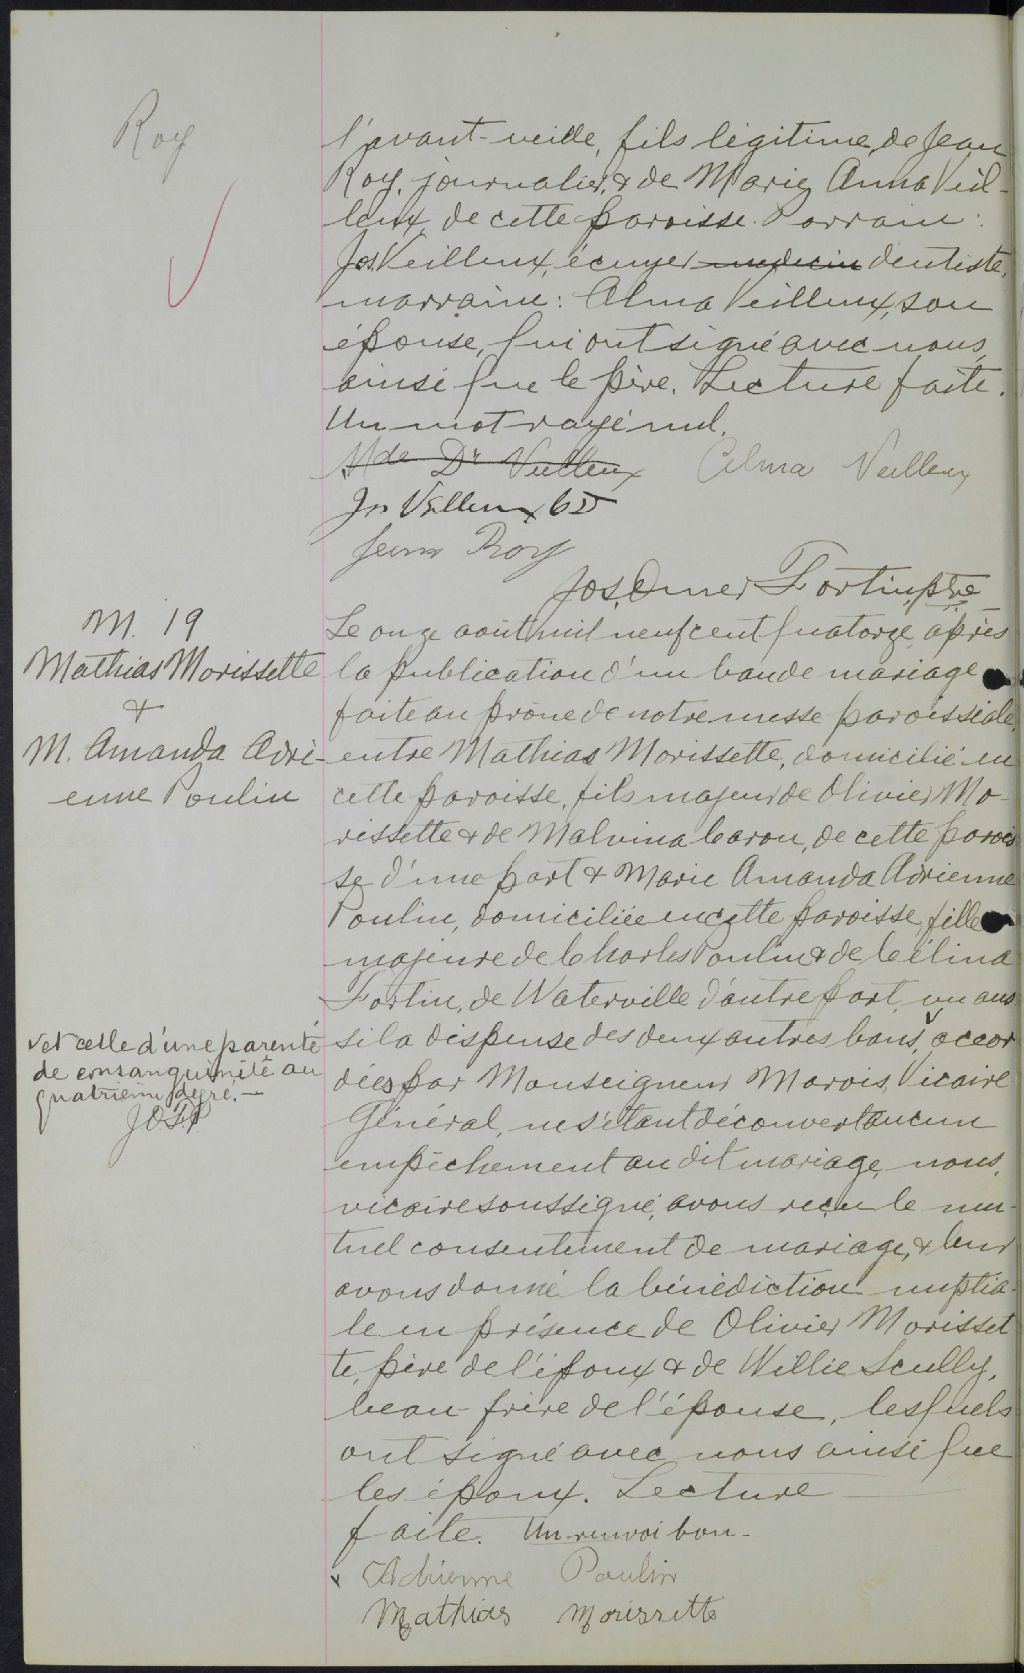 Roy
l'avant-veille, fils légitime de Jean
Roy, journalier, & de Marie Anna Veil-
leux, de cette paroisse. Parrain:
Jos. Veilleux, écuyer médecin dentiste,
marraine: Alma Veilleux, son
épouse, qui ont signé avec nous,
ainsi que le père. Lecture faite.
Un mot rayé nul.
Mde Dr Veilleux Alma Veilleux
Jos Veilleux
Jean Roy
Jos. Omer Fortin, ptre
M. 19
Mathias Morissette
&
M. Amanda Adri-
enne Poulin
Le onze août mil neuf cent quatorze, après
la publication d'un ban de mariage
faite au prône de notre messe paroissiale,
entre Mathias Morissette, domicilié en
cette paroisse, fils majeur de Olivier Mo-
rissette & de Malvina Caron, de cette parois
se d'une part & Marie Amanda Adrienne
Poulin, domiciliée en cette paroisse, fille
majeure de Charles Poulin & de Célina
Fortin, de Waterville d'autre part, vu aus
si la dispense des deux autres bans, v accor
dées par Monseigneur Marois, Vicaire
Général, ne s'étant découvert aucun
empêchement au dit mariage, nous,
vicaire soussigné, avons reçu le mu-
tuel consentement de mariage, & leur
avons donné la bénédiction nuptia-
le en présence de Olivier Morisset
te, père de l'époux & de Willie Scully,
beau-frère de l'épouse, lesquels
ont signé avec nous ainsi que
les époux. Lecture
faite. Un renvoi bon.
v et celle d'une parenté
de consanguinité au
quatrième degré.—
JOF
Adrienne Poulin
Mathias Morissette